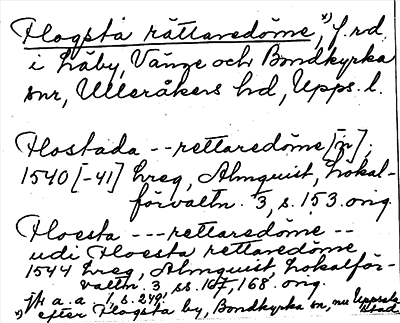 Flogsta rättaredöme, x) f. rd
i Läby, Vänge och Bondkyrka
snr, Ulleråkers hd, Upps. l.
Flostada -- rettaredöme [n]
1540 [-41] Lreg, Almquist, Lokal-
förvaltn. 3, s. 153. orig.
Floesta --- rettaredöme --
udi Floesta rettaredöme
1544 Lreg, Almquist, Lokalför-
valtn. 3 ss. 167, 168. orig.
Jfr a. a. 1, s. 249!
x) efter Flogsta by, Bondkyrka sn, nu Uppsala
stad